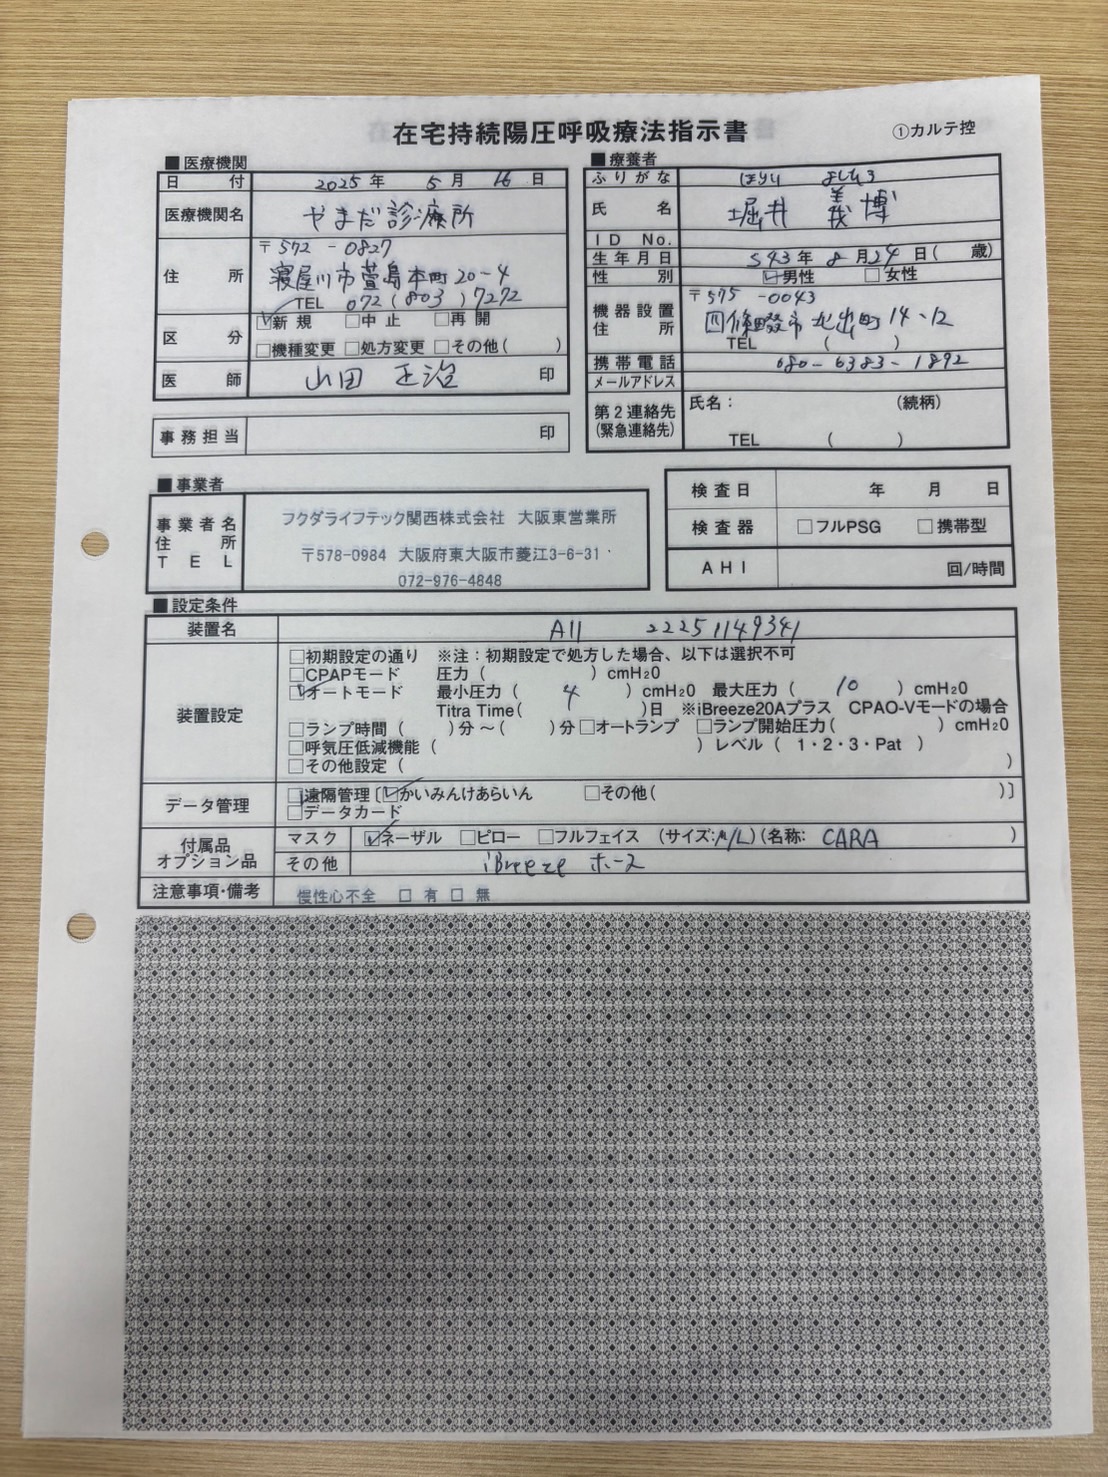 在宅持続陽圧呼吸療法指示書
①カルテ控
■医療機関
日付 2025年 5月 16日
医療機関名 やまだ診療所
住所 〒572-0827
寝屋川市萱島本町20-4
TEL 072(803)7272
区分 ☑新規 □中止 □再開
□機種変更 □処方変更 □その他( )
医師 山田 正治 印
事務担当 印
■療養者
ふりがな ほりい よしひろ
氏名 堀井 義博
ID No.
生年月日 S43年 8月24日( 歳)
性別 ☑男性 □女性
機器設置住所 〒575-0043
四條畷市北出町14-12
TEL ( )
携帯電話 080-6383-1892
メールアドレス
第2連絡先 (緊急連絡先) 氏名: (続柄)
TEL ( )
■事業者
事業者名 フクダライフテック関西株式会社 大阪東営業所
住所 〒578-0984 大阪府東大阪市菱江3-6-31
TEL 072-976-4848
検査日 年 月 日
検査器 □フルPSG □携帯型
AHI 回/時間
■設定条件
装置名 A11 22251149341
装置設定 □初期設定の通り ※注:初期設定で処方した場合、以下は選択不可
□CPAPモード 圧力( )cmH₂O
☑オートモード 最小圧力( 4 )cmH₂O 最大圧力( 10 )cmH₂O
Titra Time( )日 ※iBreeze20Aプラス CPAO-Vモードの場合
□ランプ時間( )分~( )分 □オートランプ □ランプ開始圧力( )cmH₂O
□呼気圧低減機能( )レベル( 1・2・3・Pat )
□その他設定( )
データ管理 ☑遠隔管理〔☑かいみんけあらいん □その他( )〕
□データカード
付属品 オプション品 マスク ☑ネーザル □ピロー □フルフェイス (サイズ:M/L)(名称: CARA )
その他 iBreeze ホース
注意事項・備考 慢性心不全 □有 □無